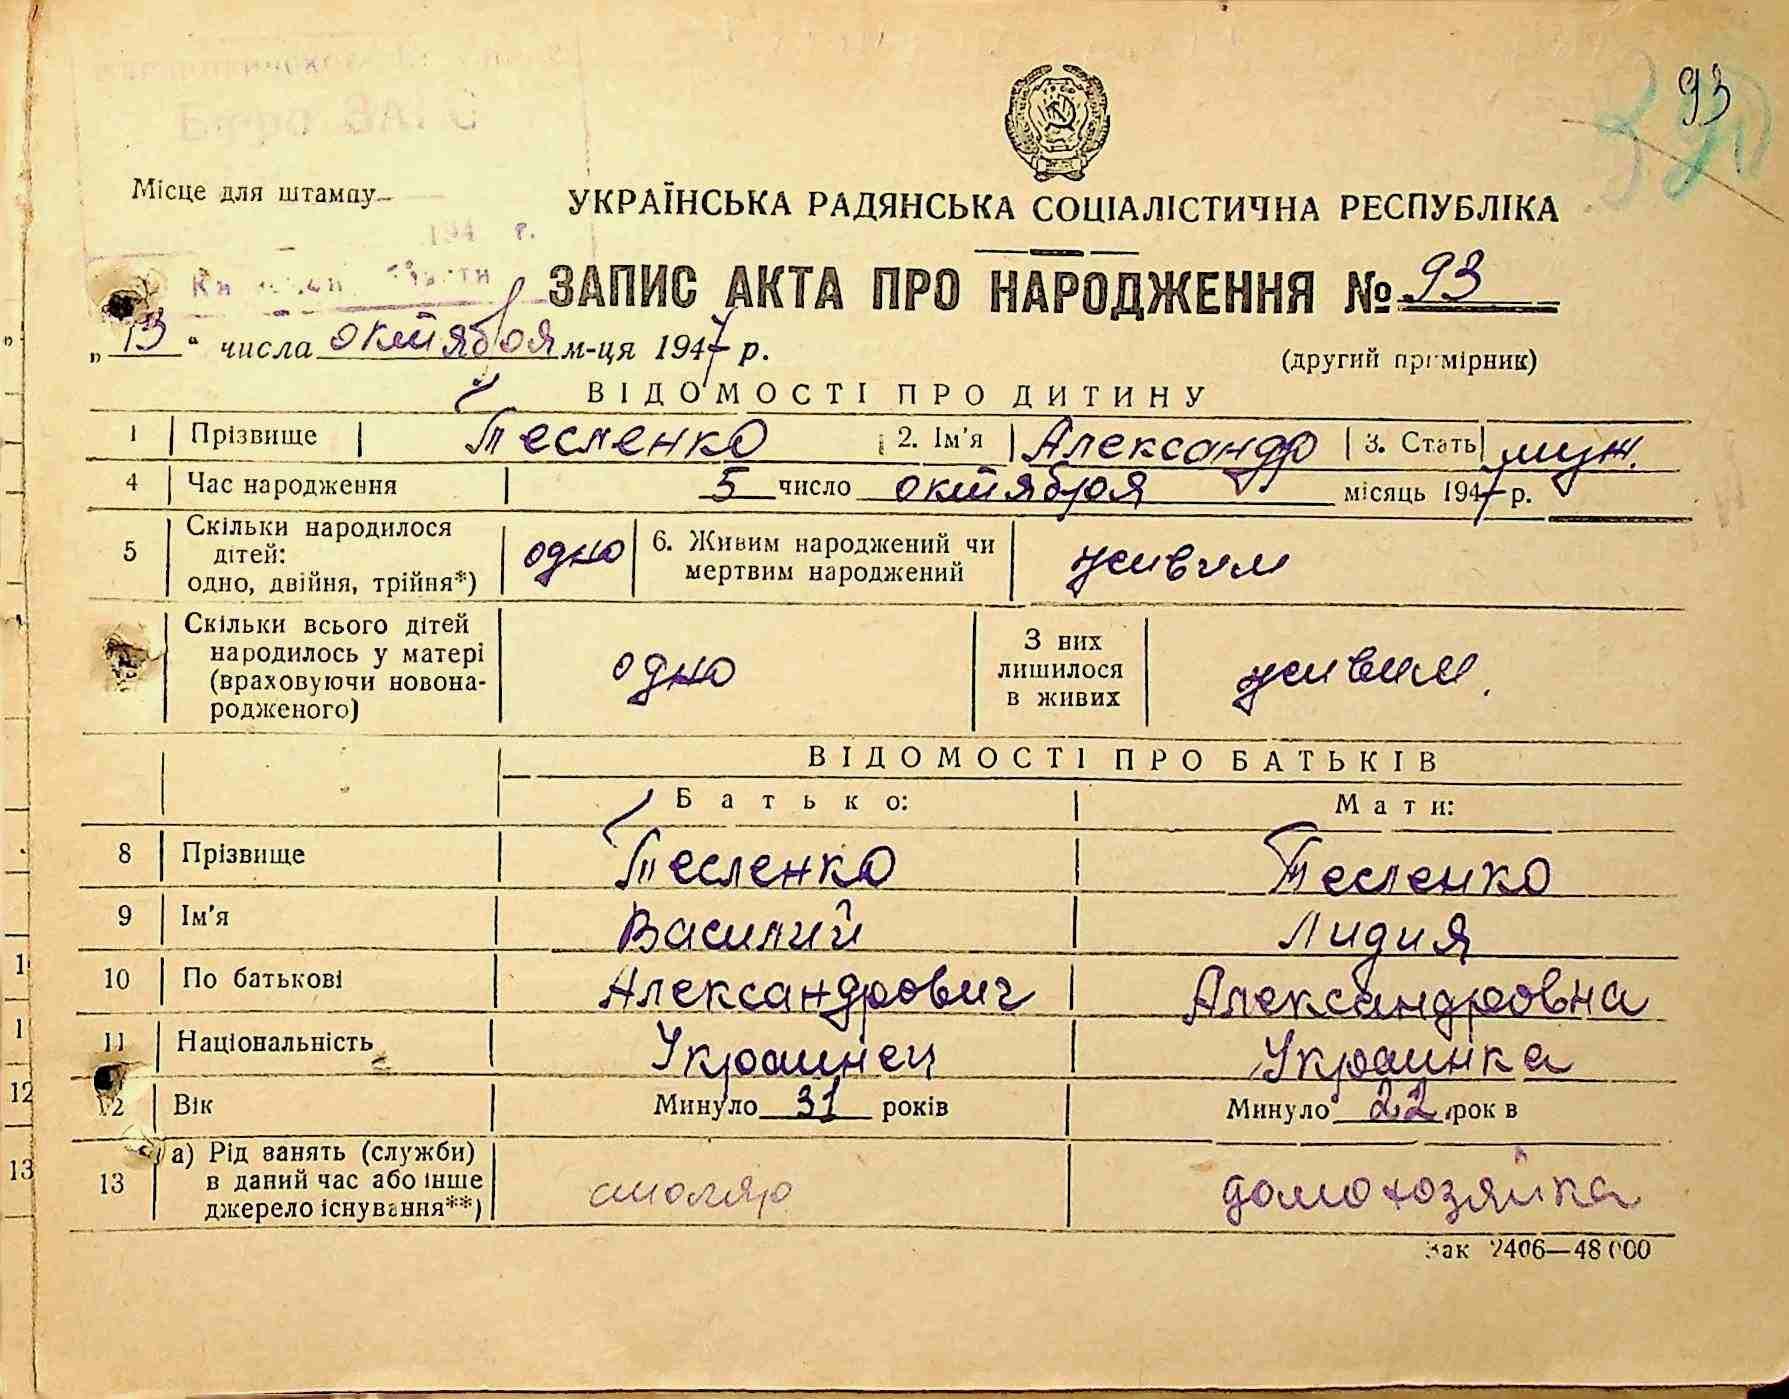 93
Бюро ЗАГС
Місце для штампу
194 г.
УКРАЇНСЬКА РАДЯНСЬКА СОЦІАЛІСТИЧНА РЕСПУБЛІКА
ЗАПИС АКТА ПРО НАРОДЖЕННЯ № 93
„13" числа октября м-ця 1947 р.
(другий примірник)
ВІДОМОСТІ ПРО ДИТИНУ
1 Прізвище Тесленко 2. Ім'я Александр 3. Стать муж.
4 Час народження 5 число октября місяць 1947 р.
5 Скільки народилося дітей: одно, двійня, трійня*) одно 6. Живим народжений чи мертвим народжений живим
Скільки всього дітей народилось у матері (враховуючи новона-родженого) одно З них лишилося в живих живим.
ВІДОМОСТІ ПРО БАТЬКІВ
Батько: Мати:
8 Прізвище Тесленко Тесленко
9 Ім'я Василий Лидия
10 По батькові Александрович Александровна
11 Національність Украинец Украинка
12 Вік Минуло 31 років Минуло 22 років
13 а) Рід занять (служби) в даний час або інше джерело існування**) столяр домохозяйка
Зак 2406—48000